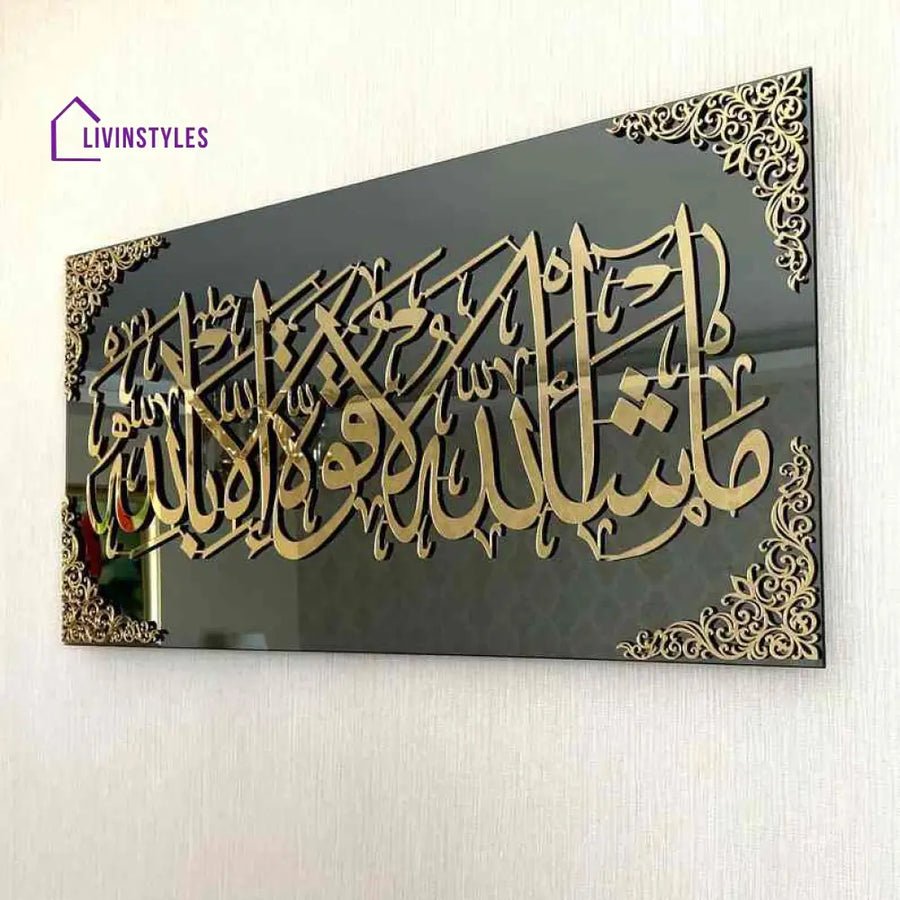 LIVINSTYLES
ما شاء الله لا قوة إلا بالله